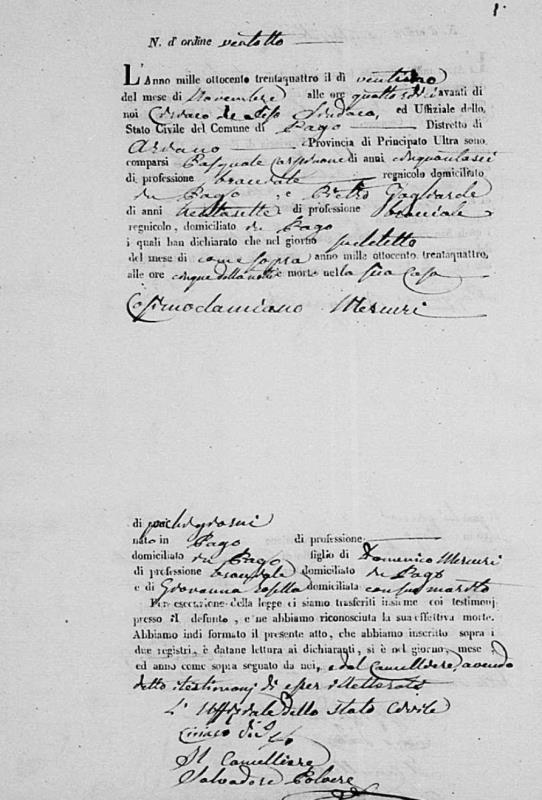 1.
N. d' ordine ventotto
L'Anno mille ottocento trentaquattro il dì ventuno
del mese di Novembre alle ore quattordici avanti di
noi Ciriaco de Liso Sindaco, ed Uffiziale dello
Stato Civile del Comune di Pago Distretto di
Ariano Provincia di Principato Ultra sono
comparsi Pasquale di anni cinquantasei
di professione bracciale regnicolo domiciliato
in Pago, e Pietro Gagliarde
di anni trentasette di professione bracciale
regnicolo, domiciliato in Pago
i quali han dichiarato che nel giorno sudetto
del mese di come sopra anno mille ottocento trentaquattro,
alle ore cinque della notte è morto nella sua Casa
Cosimodamiano Mercuri
di pochi giorni
nato in Pago di professione
domiciliato in Pago figlio di Domenico Mercuri
di professione bracciale domiciliato in Pago
e di Giovanna domiciliata con suo marito
Per esecuzione della legge ci siamo trasferiti insieme coi testimonj
presso il defunto, e ne abbiamo riconosciuta la sua effettiva morte.
Abbiamo indi formato il presente atto, che abbiamo inscritto sopra i
due registri, e datane lettura ai dichiaranti, si è nel giorno, mese
ed anno come sopra segnato da noi, e dal Cancelliere, avendo
detto i testimonj di esser illetterati
L' Uffiziale dello Stato Civile
Ciriaco
Il Cancelliere
Salvadore Polvere